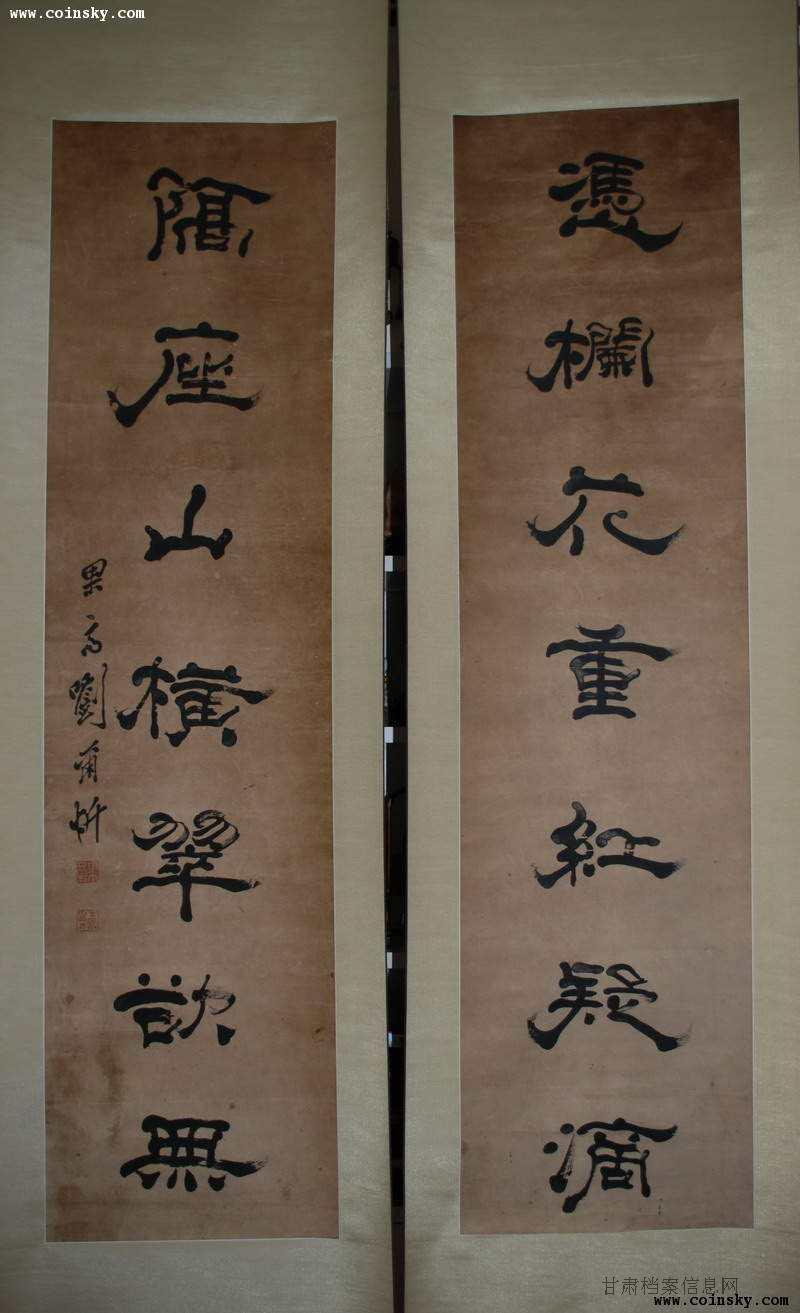 www.coinsky.com
www.coinsky.com
憑欄花重紅疑滴
隔座山橫翠欲無
果齋劉爾炘
甘肃档案信息网
www.coinsky.com